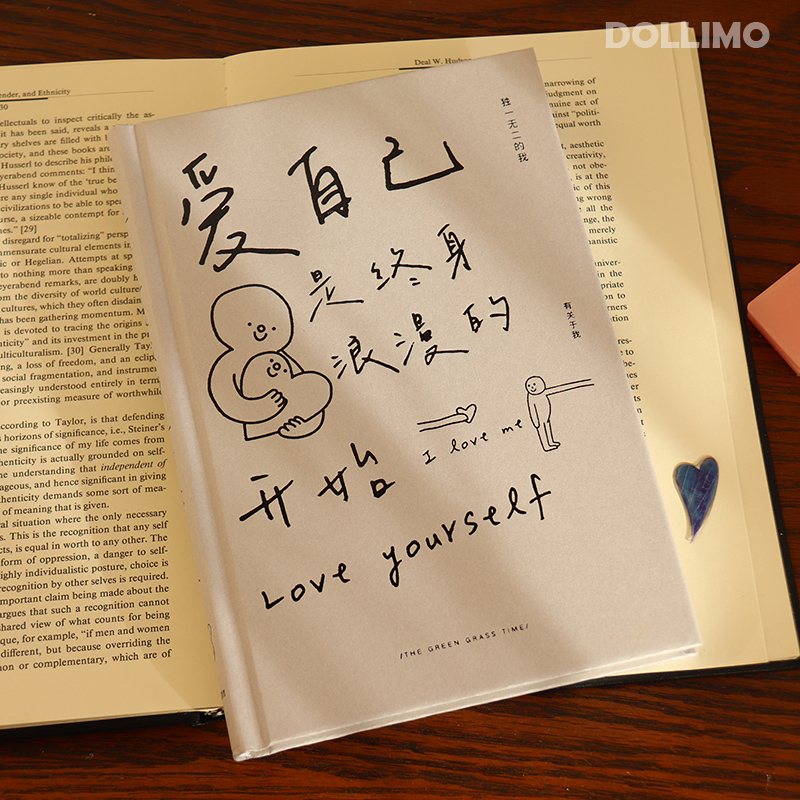 DOLLIMO
独一无二的我
爱自己
是终身
浪漫的
有关于我
开始
I love me
Love yourself
/THE GREEN GRASS TIME/
Gender, and Ethnicity
30
llectuals to inspect critically the as-
it has been said, reveals a
ry shelves are filled with
ociety, and these books are
Husserl to describe his phil
yerabend comments: "I thin
Husserl know of the 'true be
re any single individual who
civilizations to be able to spe
urse, a sizeable contempt for
nes." [29]
disregard for "totalizing" persp
mmensurate cultural elements in
ic or Hegelian. Attempts at sp
to nothing more than speaking
eyerabend remarks, are doubly h
om the diversity of world culture
cultures, which they often disdain
has been gathering momentum. M
is devoted to tracing the origins
nticity" and its investment in the pr
ulticulturalism. [30] Generally Tay
ng, a loss of freedom, and an eclip
social fragmentation, and instrumen
easingly understood entirely in term
or preexisting measure of worthwhile
ccording to Taylor, is that defending
horizons of significance, i.e., Steiner's
he significance of my life comes from
thenticity is actually grounded on self-
the understanding that independent of
ageous, and hence significant in giving
thenticity demands some sort of mea-
of meaning that is given.
al situation where the only necessary
s. This is the recognition that any self
cts, is equal in worth to any other. The
form of oppression, a danger to self-
highly individualistic posture, choice is
recognition by other selves is required.
mportant claim being made about the
argues that such a recognition cannot
shared view of what counts for being
que, for example, "if men and women
different, but because overriding the
non or complementary, which are of
Deal W. Hudson
narrowing of
judgment on
nuine act of
ainst "politi-
equal worth
, aesthetic
creativity,
not obe-
is at the
ic of this
ng wrong
all the
nge, the
merely
manistic
univer-
in the
priate
on to